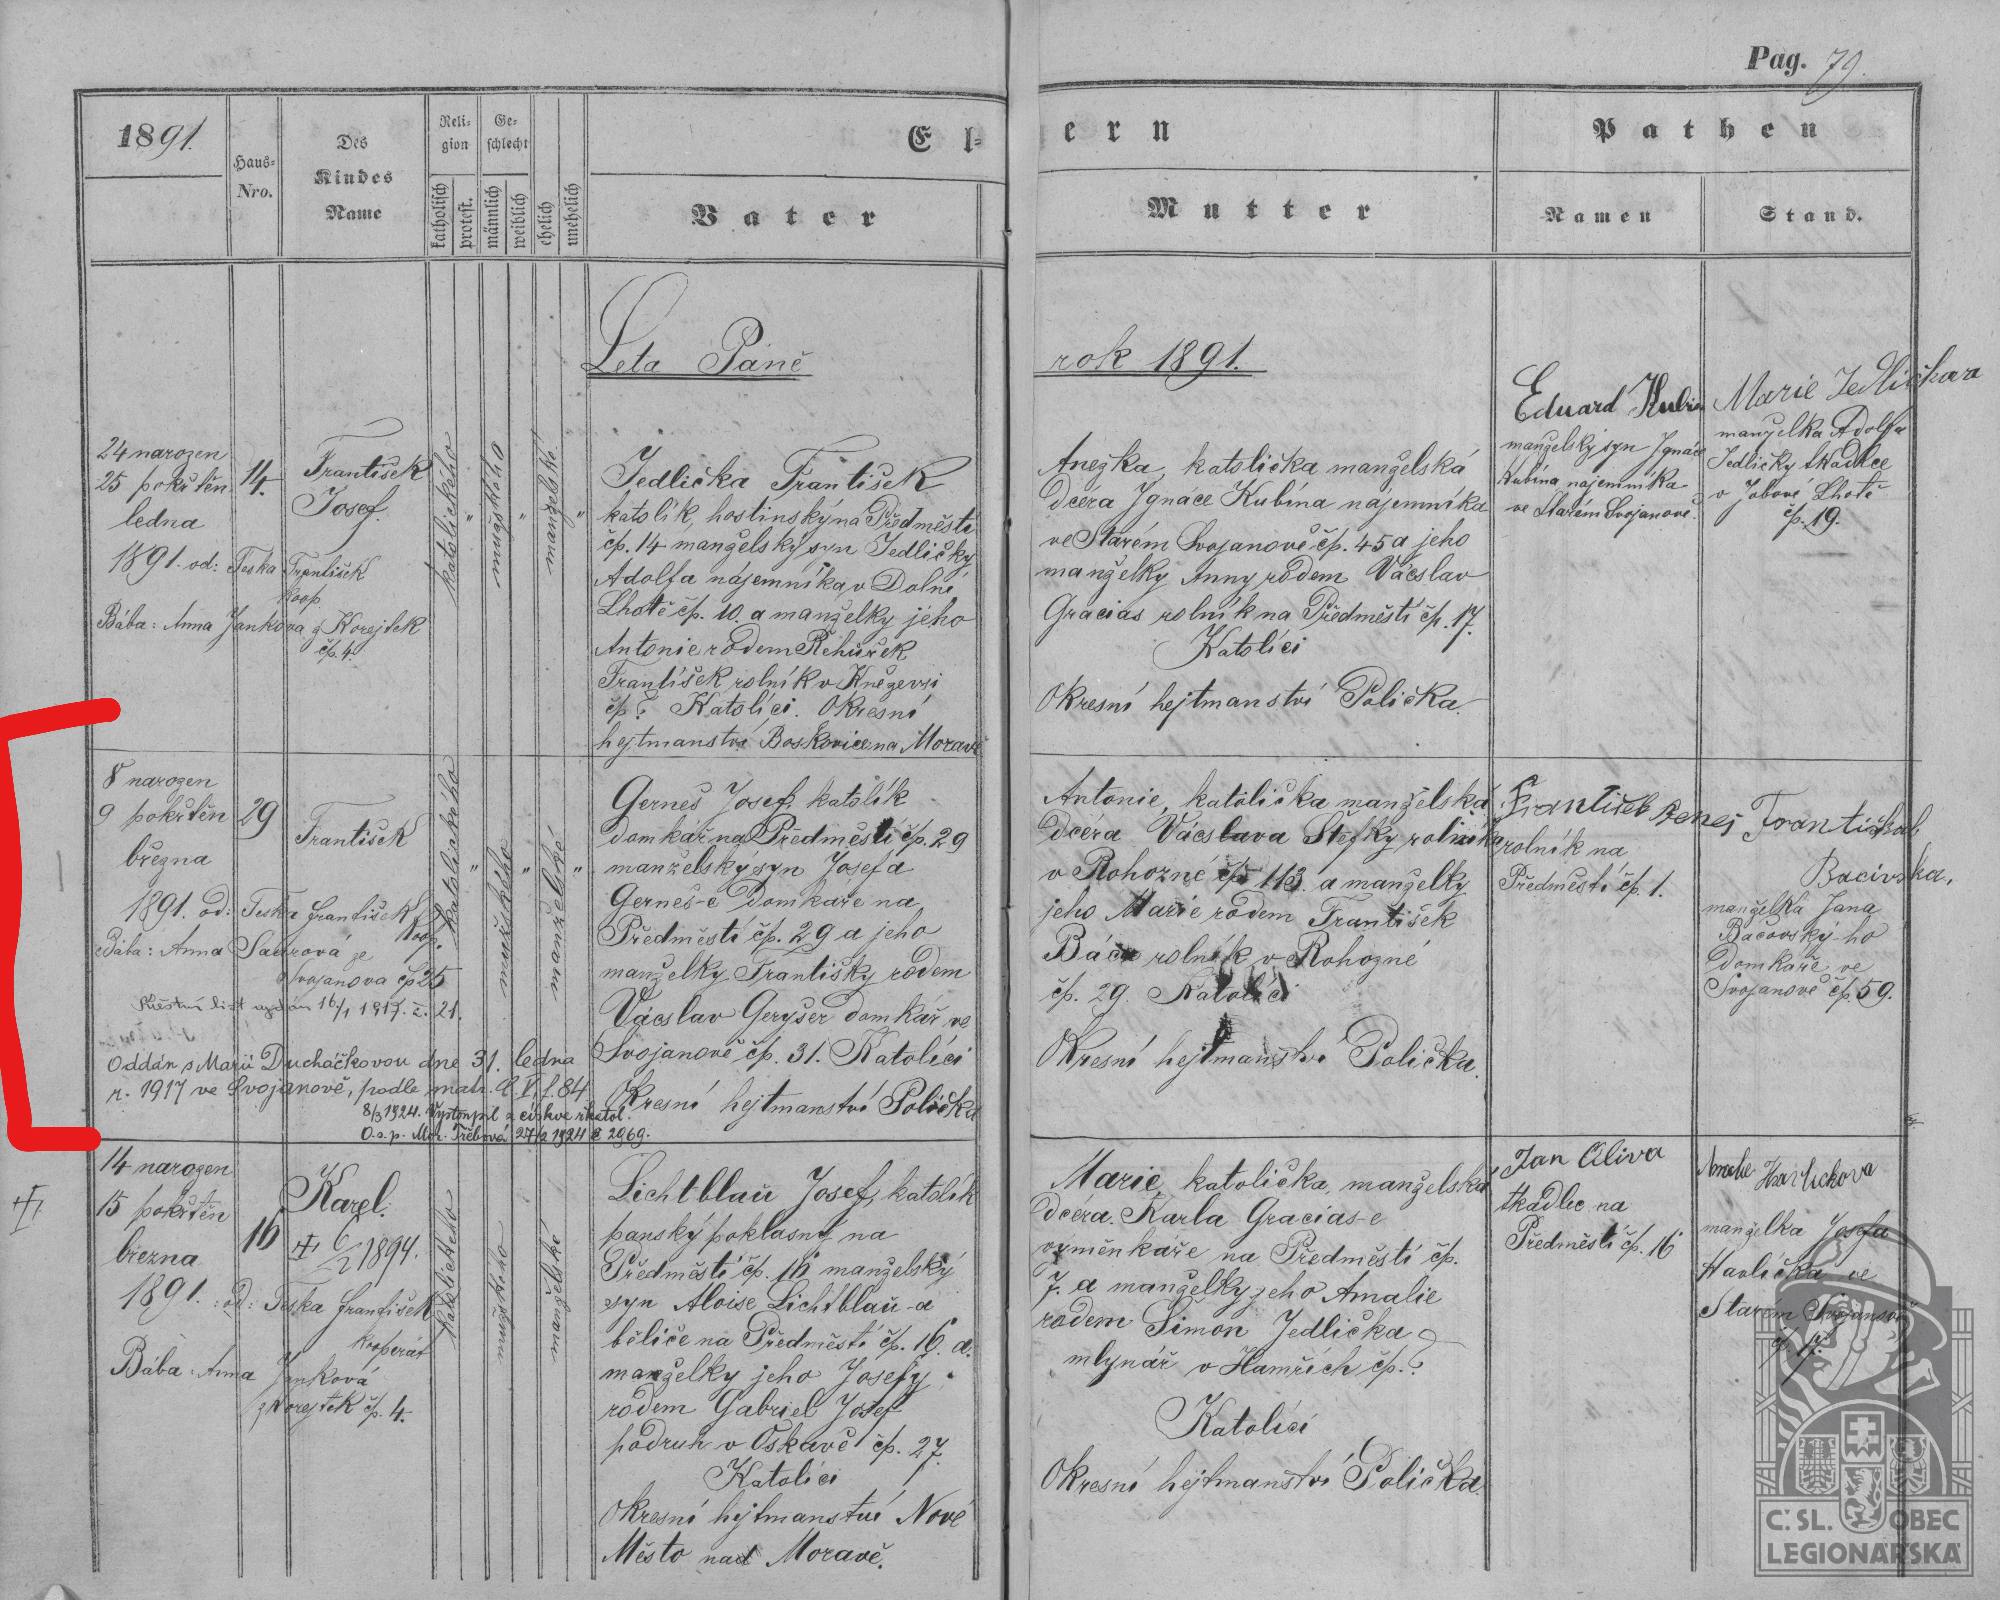 Pag. 79.
1891.
Haus-
Nro.
Des
Kindes
Name
Reli-
gion
katholisch
protest.
Ge-
schlecht
männlich
weiblich
ehelich
unehelich
El-
ern
Vater
Mutter
Pathen
Namen
Stand.
Leta Páně
rok 1891.
24 narozen
25 pokřtěn
ledna
1891. od: Teska František
koop
Bába: Anna Janková z Korejtek
čp. 4.
14.
František
Josef.
katolického
"
mužského
"
manželské
"
Jedlička František
katolík, hostinský na Předměstí
čp. 14 manželský syn Jedličky
Adolfa nájemníka v Dolní
Lhotě čp. 10. a manželky jeho
Antonie rodem Řehůřek
František rolník v Kněževsi
čp.? Katolíci. Okresní
hejtmanství Boskovice na Moravě
Anežka, katolička manželská
dcera Ignáce Kubína nájemníka
ve Starém Svojanově čp. 45 a jeho
manželky Anny rodem Vácslav
Gracias rolník na Předměstí čp. 17.
Katolíci
Okresní hejtmanství Polička.
Eduard Kubín
manželský syn Ignáce
Kubína nájemníka
ve Starém Svojanově.
Marie Jedličkova
manželka Adolfa
Jedličky tkadlce
v Jobově Lhotě
čp. 19.
8 narozen
9 pokřtěn
března
1891. od: Teska František
koop.
Bába: Anna Saurová ze
Svojanova čp 25
Křestní list vydán 16/1 1917. č. 21.
Oddán s Marií Ducháčkovou dne 31. ledna
r. 1917 ve Svojanově, podle matr. V, f. 84
8/3 1924. Vystoupil z církve řkatol.
O.s.p. Mor. Třebová 27/2 1924 č 2969.
29
František
katolického
"
mužského
"
manželské
"
Gerneš Josef, katolík
domkář na Předměstí čp. 29
manželský syn Josefa
Gerneš-e domkaře na
Předměstí čp. 29 a jeho
manželky Františky rodem
Vácslav Geryšer domkář ve
Svojanově čp. 31. Katolíci
Okresní hejtmanství Polička
Antonie, katolička manželská
dcera Vácslava Štefky rolníka
v Rohozné čp 113. a manželky
jeho Marie rodem František
Báča rolník v Rohozné
čp. 29. Katolíci
Okresní hejtmanství Polička.
František
rolník na
Předměstí čp. 1.
Františka
manželka Jana
Bačovský-ho
domkáře ve
Svojanově čp. 59.
14 narozen
15 pokřtěn
března
1891. od: Teska František
kooperát
Bába: Anna Janková
z Korejtek čp. 4.
16
Karel.
1894.
katolického
mužského
manželské
Lichtblau Josef, katolík
panský poklasný na
Předměstí čp. 16 manželský
syn Aloise Lichtblau-a
běliče na Předměstí čp. 16. a.
manželky jeho Josefy
rodem Gabriel Josef
podruh v Oskavě čp. 27.
Katolíci
Okresní hejtmanství Nové
Město nad Moravě.
Marie katolička, manželská
dcera. Karla Gracias-e
výměnkáře na Předměstí čp.
7. a manželky jeho Amalie
rodem Šimon Jedlička
mlynář v Hamřích čp.?
Katolíci
Okresní hejtmanství Polička.
Jan Oliva
tkadlec na
Předměstí čp. 16
Havlickova
manželka Josefa
Havlíčka ve
Starém Svojanově
čp 17.
Č. SL. OBEC
LEGIONÁŘSKÁ